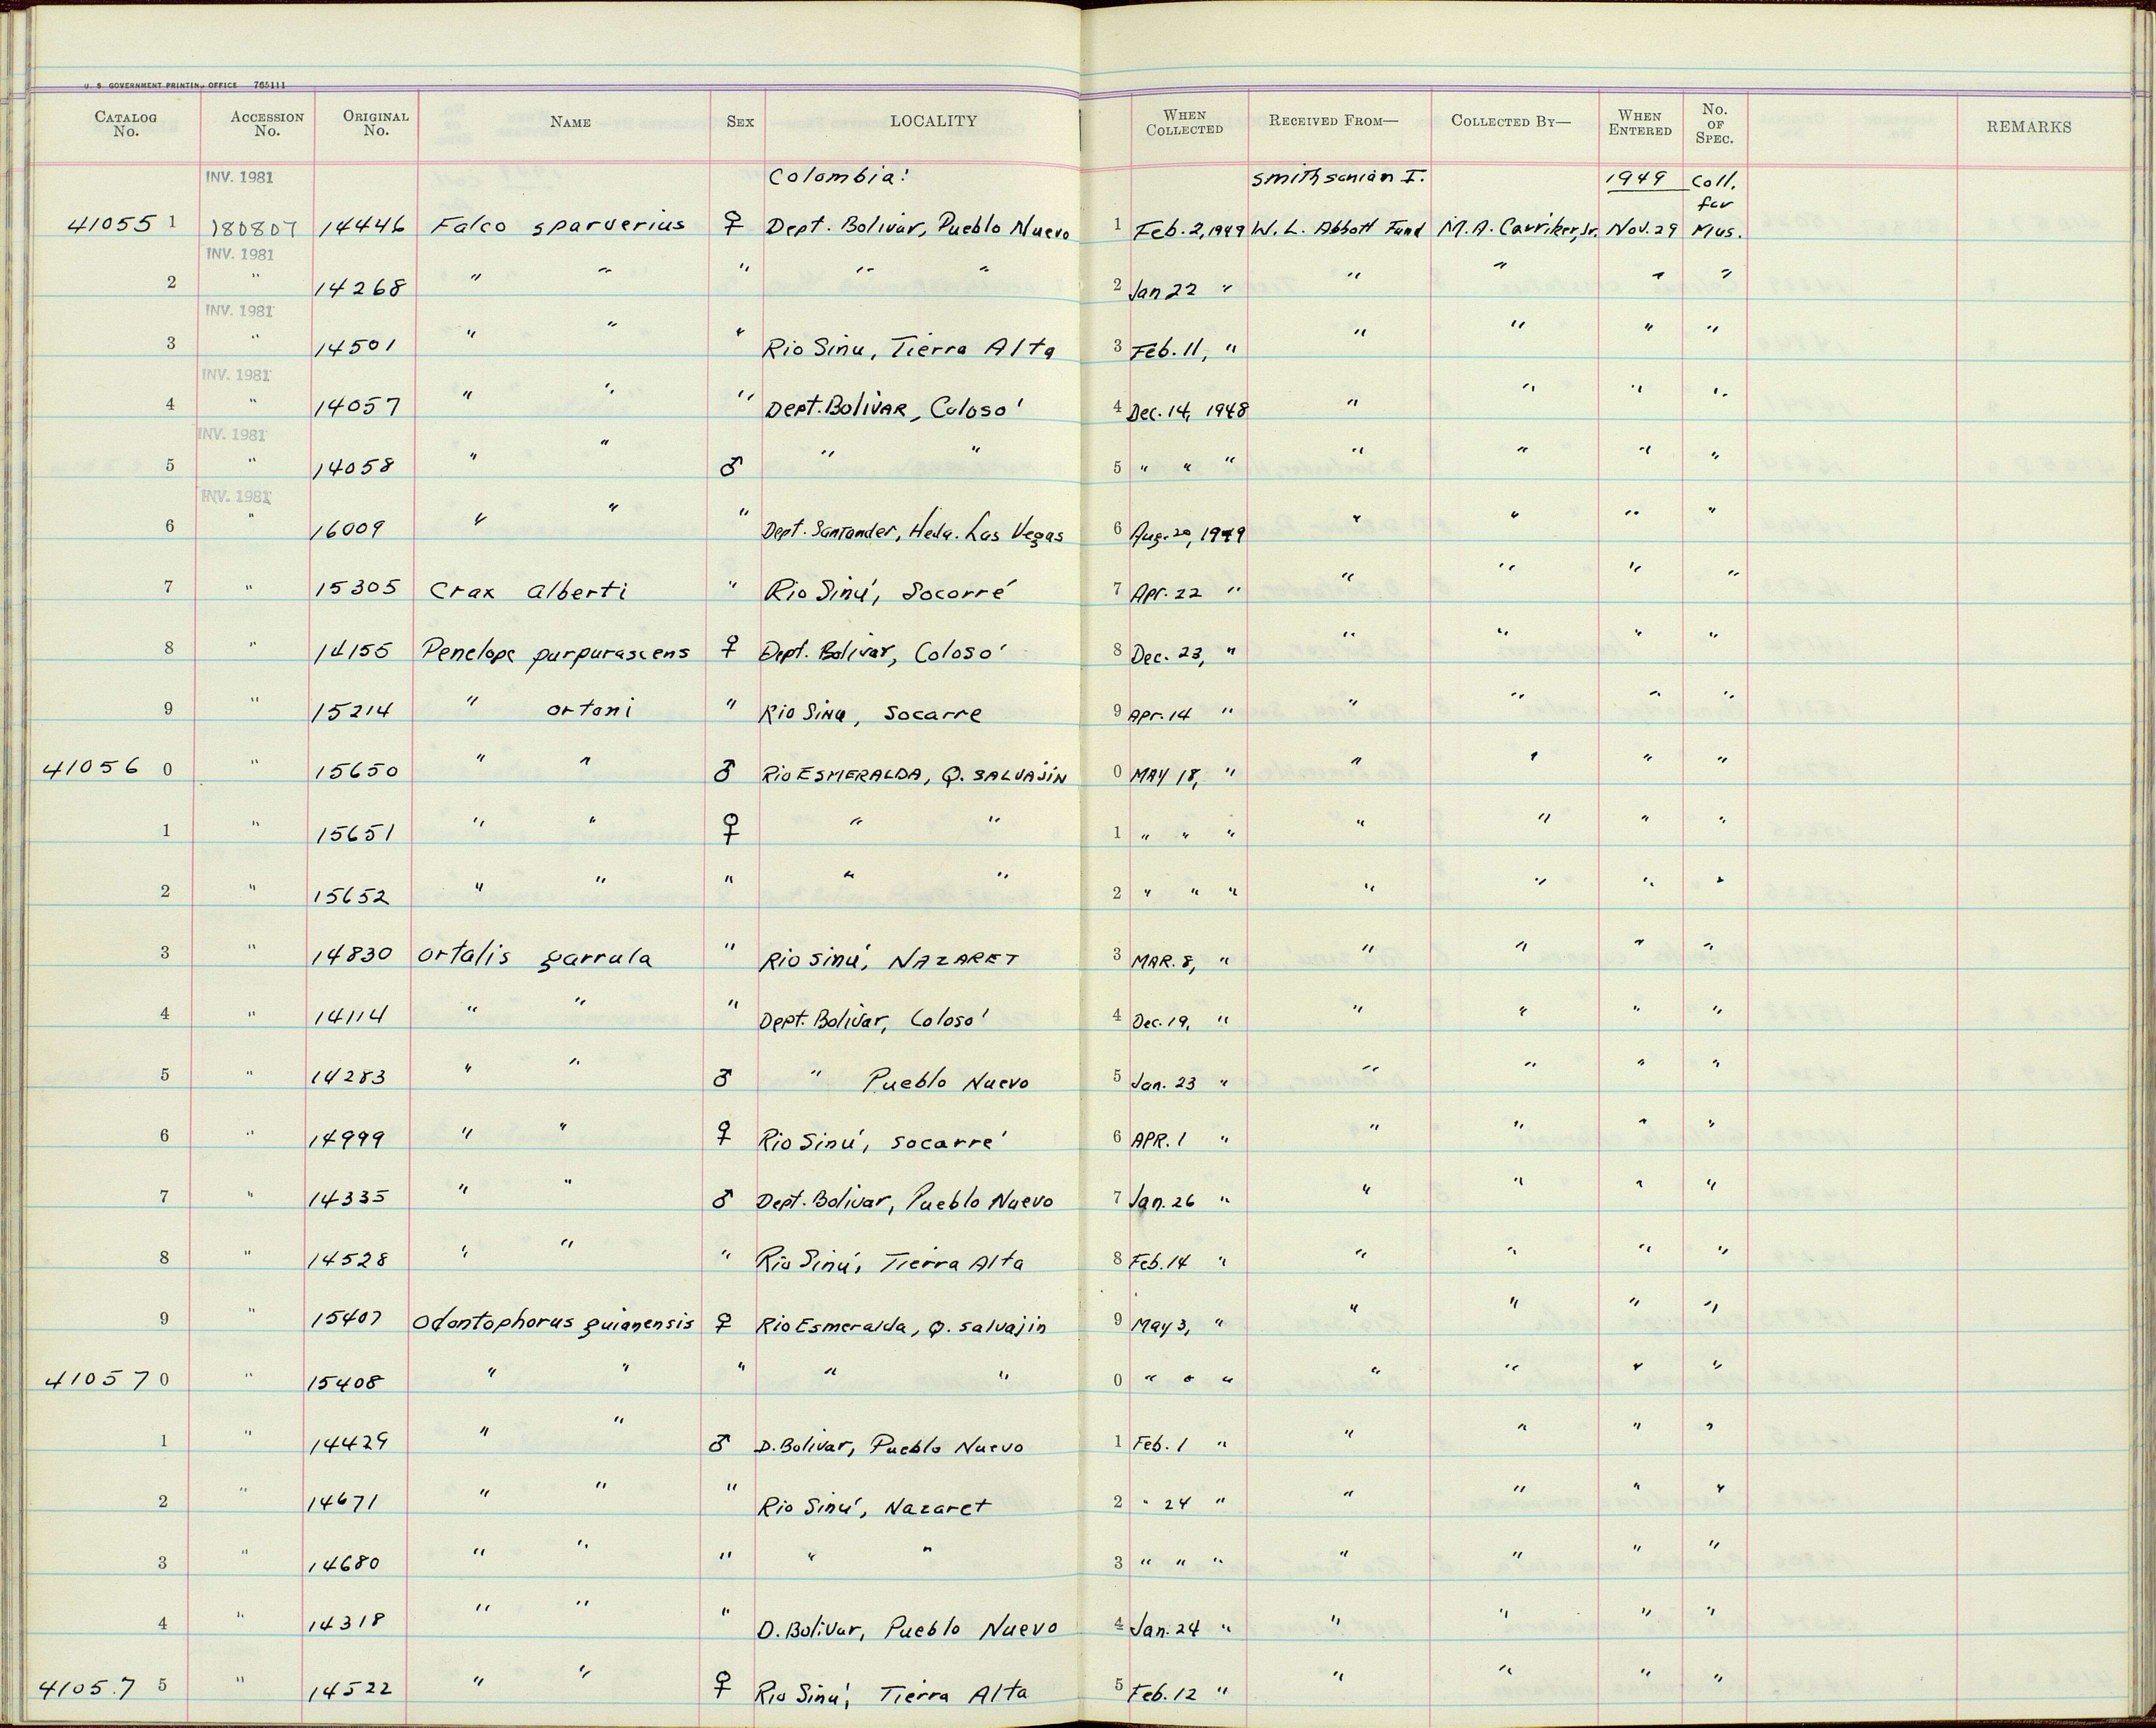 U. S. GOVERNMENT PRINTING OFFICE 765111
CATALOG No. ACCESSION No. ORIGINAL No. NAME SEX LOCALITY WHEN COLLECTED RECEIVED FROM— COLLECTED BY— WHEN ENTERED No. OF SPEC. REMARKS
INV. 1981 Colombia: Smithsonian I. 1949 Coll. for
41055 1 180807 14446 Falco sparverius ♀ Dept. Bolivar, Pueblo Nuevo 1 Feb. 2, 1949 W. L. Abbott Fund M. A. Carriker, Jr. Nov. 29 Mus.
INV. 1981
2 " 14268 " " " " " 2 Jan 22 " " " " "
INV. 1981
3 " 14501 " " " Rio Sinu, Tierra Alta 3 Feb. 11, " " " " "
INV. 1981
4 " 14057 " " " Dept. Bolivar, Coloso' 4 Dec. 14, 1948 " " " "
INV. 1981
5 " 14058 " " ♂ " " 5 " " " " " " "
INV. 1981
6 " 16009 " " " Dept. Santander, Heda. Las Vegas 6 Aug. 20, 1949 " " " "
7 " 15305 Crax alberti " Rio Sinú, Socorré 7 Apr. 22 " " " " "
8 " 14155 Penelope purpurascens ♀ Dept. Bolivar, Coloso' 8 Dec. 23, " " " " "
9 " 15214 " ortoni " Rio Sinu, Socarre 9 Apr. 14 " " " " "
41056 0 " 15650 " " ♂ Rio ESMERALDA, Q. SALVAJIN 0 MAY 18, " " " " "
1 " 15651 " " ♀ " " 1 " " " " " " "
2 " 15652 " " " " " 2 " " " " " " "
3 " 14830 Ortalis garrula " Rio Sinú, NAZARET 3 MAR. 8, " " " " "
4 " 14114 " " " Dept. Bolivar, Coloso' 4 Dec. 19, " " " " "
5 " 14283 " " ♂ " Pueblo Nuevo 5 Jan. 23 " " " " "
6 " 14999 " " ♀ Rio Sinú, Socarre' 6 APR. 1 " " " " "
7 " 14335 " " ♂ Dept. Bolivar, Pueblo Nuevo 7 Jan. 26 " " " " "
8 " 14528 " " " Rio Sinú, Tierra Alta 8 Feb. 14 " " " " "
9 " 15407 Odontophorus guianensis ♀ Rio Esmeralda, Q. Salvajin 9 May 3, " " " " "
41057 0 " 15408 " " " " " 0 " " " " " " "
1 " 14429 " " ♂ D. Bolivar, Pueblo Nuevo 1 Feb. 1 " " " " "
2 " 14671 " " " Rio Sinú, Nazaret 2 " 24 " " " " "
3 " 14680 " " " " " 3 " " " " " " "
4 " 14318 " " " D. Bolivar, Pueblo Nuevo 4 Jan. 24 " " " " "
41057 5 " 14522 " " ♀ Rio Sinú, Tierra Alta 5 Feb. 12 " " " " "